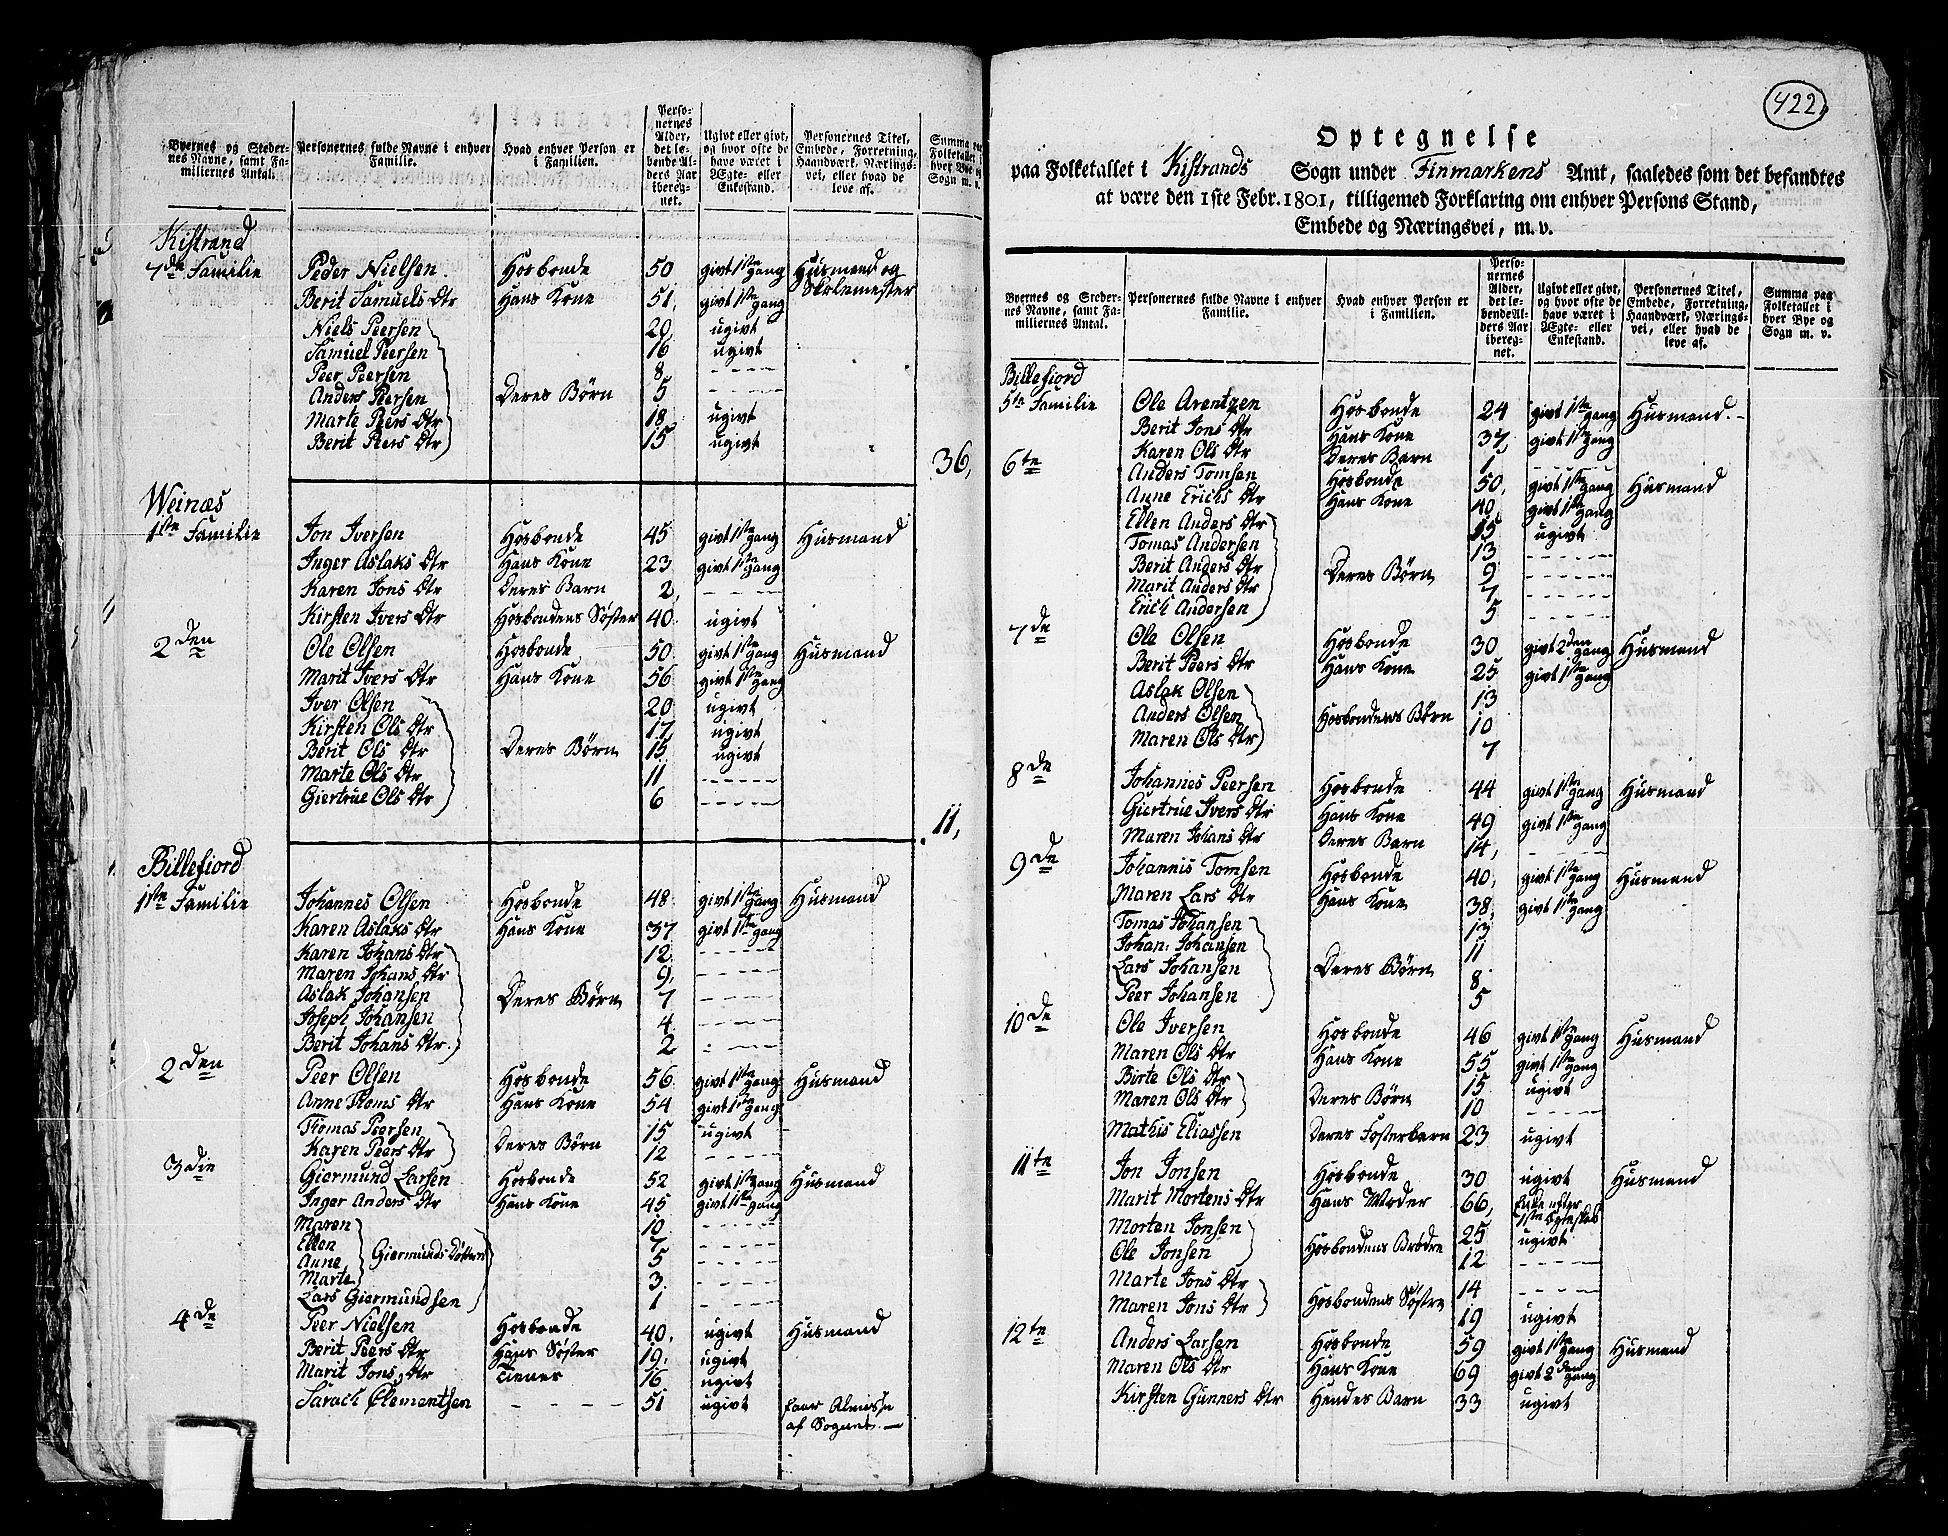 Byernes og Stedernes Navne, samt Familiernes Antal.
Personernes fulde Navne i enhver Familie.
Hvad enhver Person er i Familien.
Personernes Alder, det lebende Alders Aar iberegnet.
Ugivt eller givt, og hvor ofte de have været i Ægte- eller Enkestand.
Personernes Titel, Embede, Forretning, Haandværk, Nærings-vei, eller hvad de leve af.
Summa paa Folketallet i hver Bye og Sogn m. v.
Kistrand
7de Familie Peder Nielsen. Hosbonde 50 givt 1ste gang Husmand og Skolemester
Berit Samuels Dtr Hans Kone 51, givt 1ste gang
Niels Peersen 20, ugivt
Samuel Peersen 16 ugivt
Peer Peersen 8, - - - -
Anders Peersen Deres Börn 5 - - - -
Marte Peers Dtr 18, ugivt
Berit Peers Dtr 15 ugivt
36,
Weinæs
1ste Familie Jon Iversen Hosbonde 45 givt 1ste gang Husmand
Inger Aslaks Dtr Hans Kone 23 givt 1ste gang
Karen Jons Dtr Deres Barn 2, - - -
Kirsten Ivers Dtr Hosbondens Söster 40. ugivt
2den Ole Olsen Hosbonde 50. givt 1ste gang Husmand
Marit Ivers Dtr Hans Kone 56 givt 1ste gang
Iver Olsen 20 ugivt
Kirsten Ols Dtr 17 ugivt
Berit Ols Dtr Deres Börn 15 ugivt
Marte Ols Dtr 11 - - - - -
Giertrue Ols Dtr 6 - - - - -
11,
Billefiord
1ste Familie Johannes Olsen Hosbonde 48 givt 1ste gang Husmand
Karen Aslaks Dtr Hans Kone 37 givt 1ste gang
Karen Johans Dtr 12 - - - -
Maren Johans Dtr 9, - - - -
Aslak Johansen Deres Börn 7 - - - -
Joseph Johansen 4 - - - -
Berit Johans Dtr. 2 - - -
2den Peer Olsen Hosbonde 56 givt 1ste gang Husmand
Anne Thoms Dtr Hans Kone 54 givt 1ste gang
Thomas Peersen 15 ugivt
Karen Peers Dtr Deres Börn 12 - - - -
3die Giermund Larsen Hosbonde 52 givt 1ste gang Husmand
Inger Anders Dtr Hans Kone 45 givt 1ste gang
Maren 10 - - - -
Ellen 7 - - - -
Anne Giermunds Döttre 5 - - - -
Marte 3. - - - -
Lars Giermundsen 1 - - - -
4de Peer Nielsen Hosbonde 40, ugivt Husmand
Berit Peers Dtr Hans Söster 19. ugivt
Marit Jons Dtr Tiener 16 ugivt
Sarach Clementsen - - - - 51 ugivt faar Almisse
af Sognet. —
422
Optegnelse
paa Folketallet i Kistrands Sogn under Finmarkens Amt, saaledes som det befandtes
at være den 1ste Febr. 1801, tilligemed Forklaring om enhver Persons Stand,
Embede og Næringsvei, m. v.
Byernes og Stedernes Navne, samt Familiernes Antal.
Personernes fulde Navne i enhver Familie.
Hvad enhver Person er i Familien.
Personernes Alder, det lebende Alders Aar iberegnet.
Ugivt eller givt, og hvor ofte de have været i Ægte- eller Enkestand.
Personernes Titel, Embede, Forretning, Haandværk, Nærings-vei, eller hvad de leve af.
Summa paa Folketallet i hver Bye og Sogn m. v.
Billefiord
5te Familie Ole Arentzen Hosbonde 24 givt 1ste gang Husmand. -
Berit Jons Dtr Hans Kone 37, givt 1ste gang
Karen Ols Dtr Deres Barn 1 - - - -
6te Anders Tomsen Hosbonde 50, givt 1ste gang Husmand
Anne Erichs Dtr Hans Kone 40, givt 1ste gang
Ellen Anders Dtr 15 ugivt
Tomas Andersen 13 - - - - -
Berit Anders Dtr Deres Börn 9 - - - - -
Marit Anders Dtr 7 - - - - -
Erich Andersen 5 - - - - -
7de Ole Olsen Hosbonde 30 givt 2den gang Husmand
Berit Peers Dtr Hans Kone 25 givt 1ste gang
Aslak Olsen 13
Anders Olsen Hosbondens Börn 10
Maren Ols Dtr 7
8de Johannes Peersen Hosbonde 44 givt 1ste gang Husmand
Giertrue Ivers Dtr Hans Kone 49 givt 1ste gang
Maren Johans Dtr Deres Barn 14, - - - -
9de Johannis Tomsen Hosbonde 40, givt 1ste gang Husmand
Maren Lars Dtr Hans Kone 38, givt 1ste gang
Tomas Johansen 13
Johan: Johansen 11
Lars Johansen Deres Börn 8
Peer Johansen 5
10de Ole Iversen Hosbonde 46 givt 1ste gang Husmand
Maren Ols Dtr Hans Kone 55 givt 1ste gang
Birte Ols Dtr 15 ugivt
Maren Ols Dtr Deres Börn 10 - - - -
Mathis Eliassen Deres Fosterbarn 23 ugivt
11te Jon Jonsen Hosbonde 30 ugivt Husmand
Marit Mortens Dtr Hans Moder 66, Enke efter 1ste Egteskab
Morten Jonsen 25 ugivt
Ole Jonsen Hosbondens Brödre 12 - - - -
Marte Jons Dtr 14 - - - -
Maren Jons Dtr Hosbondens Söstre 19 ugivt
12te Anders Larsen Hosbonde 59 givt 1ste gang Husmand
Maren Ols Dtr Hans Kone 69 givt 2den gang
Kirsten Gunners Dtr Hendes Barn 33 ugivt